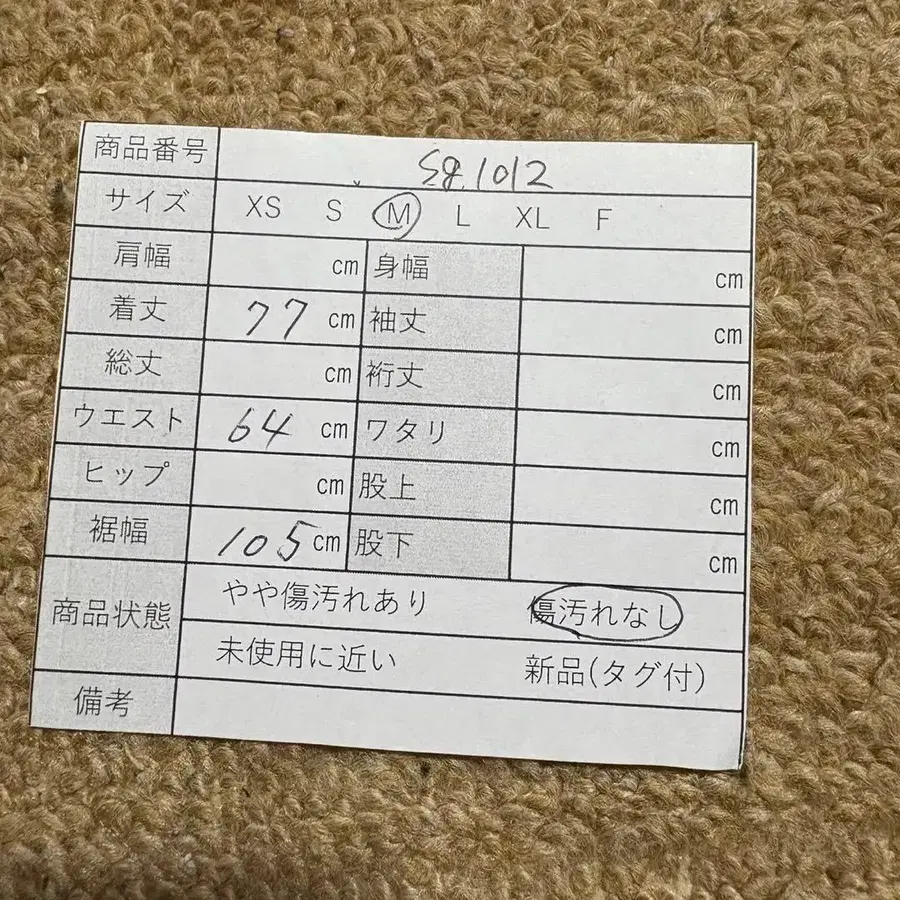 商品番号 Sg.1012
サイズ XS S M L XL F
肩幅 cm 身幅 cm
着丈 77 cm 袖丈 cm
総丈 cm 裄丈 cm
ウエスト 64 cm ワタリ cm
ヒップ cm 股上 cm
裾幅 105 cm 股下 cm
商品状態 やや傷汚れあり 傷汚れなし
未使用に近い 新品(タグ付)
備考